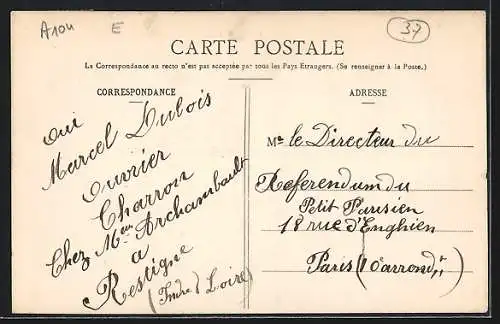 A1ou E
37
CARTE POSTALE
La Correspondance au recto n'est pas acceptée par tous les Pays Etrangers. (Se renseigner à la Poste.)
CORRESPONDANCE
oui
Marcel Dubois
ouvrier
Charron
Chez Mme Archambault
a
Restigné
(Indre & Loire)
ADRESSE
Mr le Directeur du
Referendum du
Petit Parisien
18 rue d'Enghien
Paris (10e arrondt)